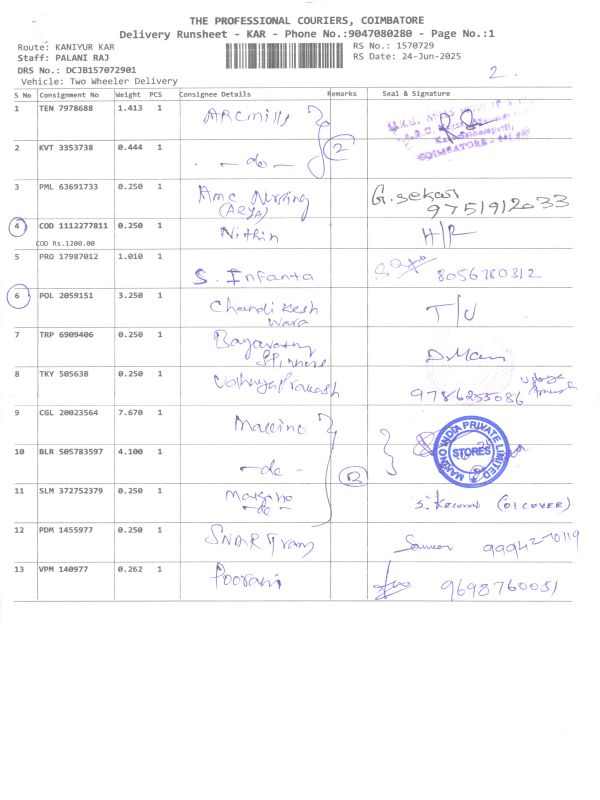 THE PROFESSIONAL COURIERS, COIMBATORE
Delivery Runsheet - KAR - Phone No.:9047080280 - Page No.:1
Route: KANIYUR KAR
RS No.: 1570729
Staff: PALANI RAJ
RS Date: 24-Jun-2025
DRS No.: DCJB157072901
Vehicle: Two Wheeler Delivery
2.
S No Consignment No Weight PCS Consignee Details Remarks Seal & Signature
1 TEN 7978688 1.413 1 ARC mills
2 KVT 3353738 0.444 1 - do - 2
COIMBATORE
3 PML 63691733 0.250 1 Amc Nursing G. sekar
(ARYA) 9751912033
4 COD 1112277811 0.250 1 Nithin H/R
COD Rs.1200.00
5 PRO 17987012 1.010 1 S. Infanta 8056780312
6 POL 2059151 3.250 1 Chandikesh T/U
wara
7 TRP 6909406 0.250 1 D.Mani
8 TKY 505638 0.250 1 9786255086
9 CGL 20023564 7.670 1
MAXINO INDIA PRIVATE LIMITED
STORES
10 BLR 505783597 4.100 1 - do -
11 SLM 372752379 0.250 1 Maxino (01 COVER)
- do -
12 PDM 1455977 0.250 1 99942-70119
13 VPM 140977 0.262 1 Poorani 9698760051